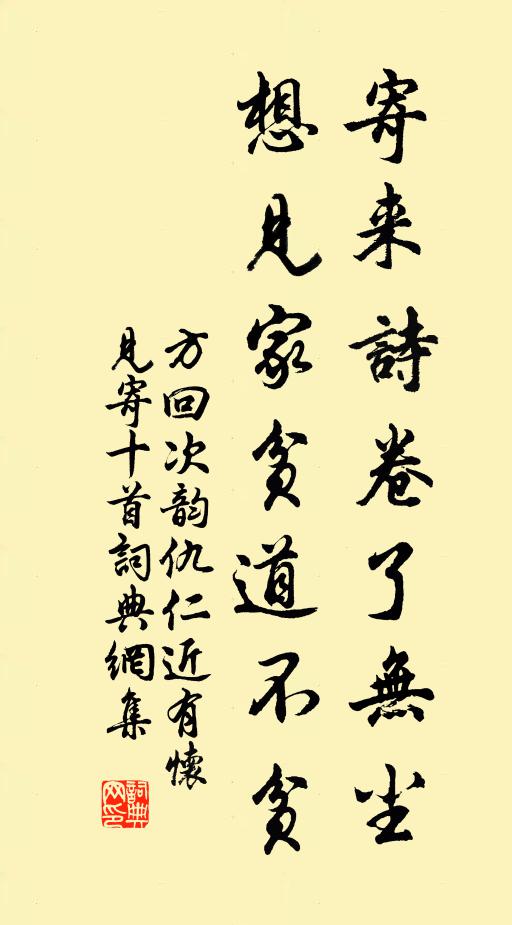 寄来詩卷了無尘
想見家貧道不貧
方回次韵仇仁近有懷
見寄十首詞典網集
詞典网印